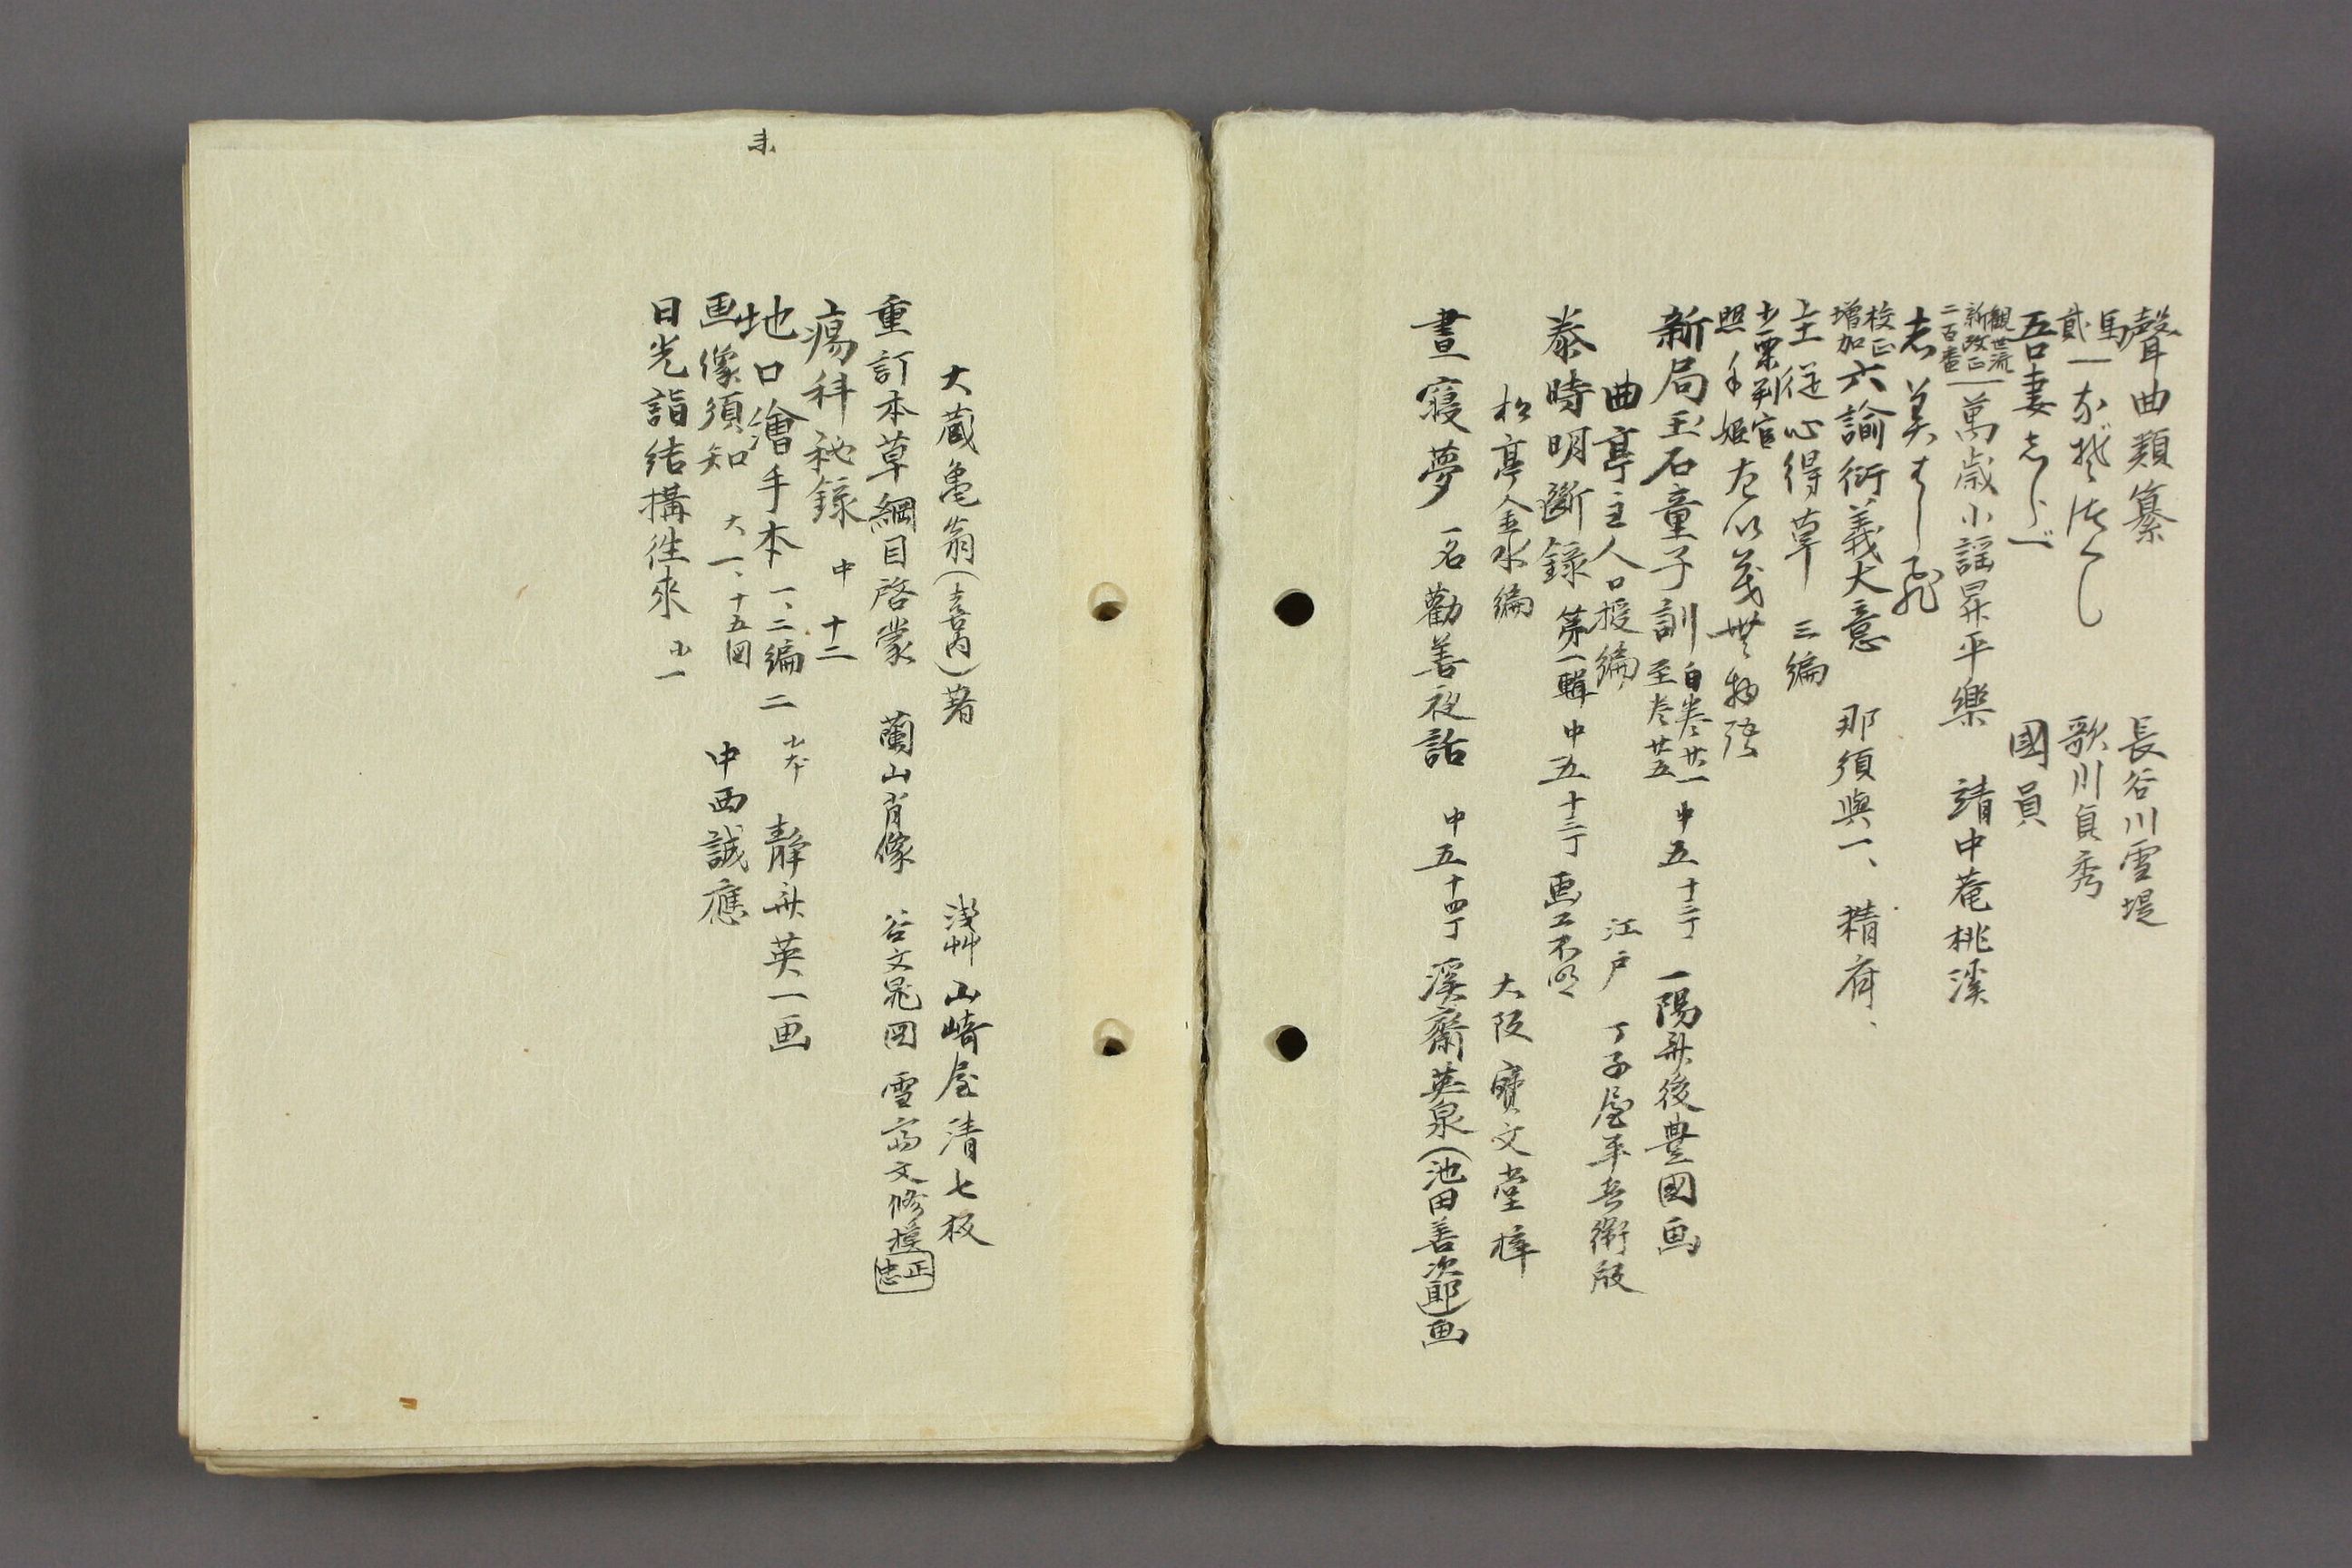 聲曲類纂 長谷川雪堤
馬貳一なぞ尽くし 歌川貞秀
吾妻志らべ 國員
觀世流新改正二百番一萬歳小謡昇平樂 靖中菴桃溪
校正増加六諭衍義大意 那須與一、精府、
士徒心得草 三編
小栗判官照手姫
新局玉石童子訓 自巻廿一至巻廿五 中五 十三丁 一陽斎後豊國画
曲亭主人口授編 江戸 丁子屋平兵衛版
泰時明斷録 第一輯 中五 十三丁 画工不明
松亭金水編 大阪 寶文堂梓
晝寢夢 一名勸善夜話 中五 十四丁 溪齋英泉(池田善次郎)画
未
大蔵亀翁(喜内)著 浅艸 山崎屋清七板
重訂本草綱目啓蒙 蘭山肖像 谷文晁図 雪斎文修摸 正忠
瘍科秘録 中 十二
地口繪手本 一、二編 二 小本 静斎英一画
画像須知 大一、十五図 中西誠應
日光詣結構往來 小一